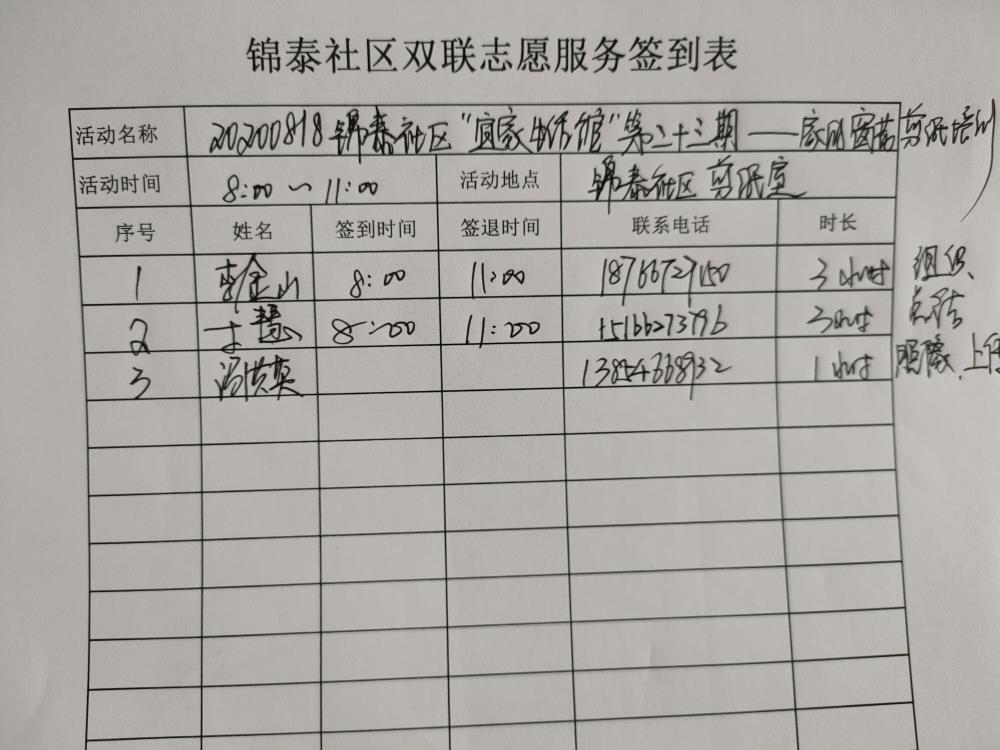 锦泰社区双联志愿服务签到表
活动名称 20200818锦泰社区"宜家生活馆"第二十三期——家用窗花剪纸培训
活动时间 8:00~11:00 活动地点 锦泰社区剪纸室
序号 姓名 签到时间 签退时间 联系电话 时长
1 李金山 8:00 11:00 18766727150 3小时 组织
2 于慧 8:00 11:00 15166273796 3小时 总结
3 冯洪英 13854668932 1小时 照像、上传